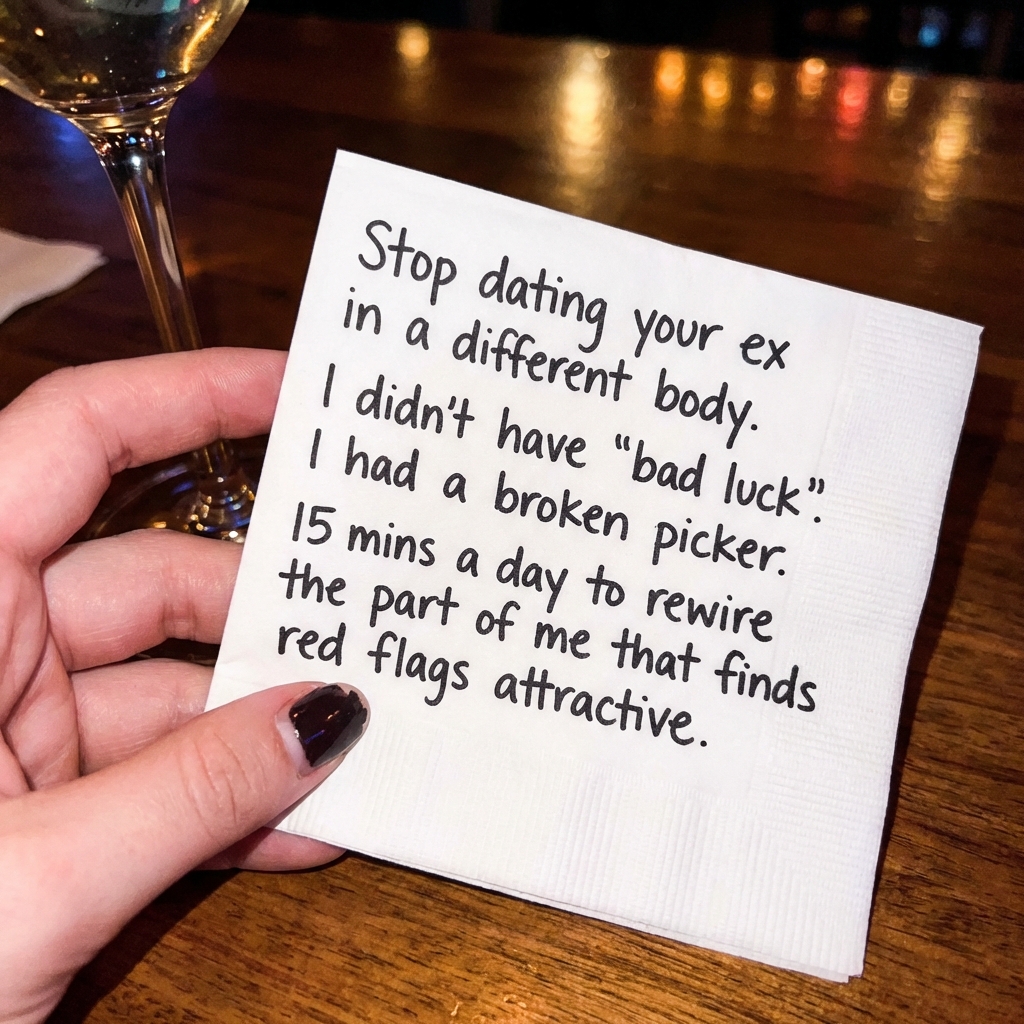 Stop dating your ex
in a different body.
I didn't have "bad luck".
I had a broken picker.
15 mins a day to rewire
the part of me that finds
red flags attractive.